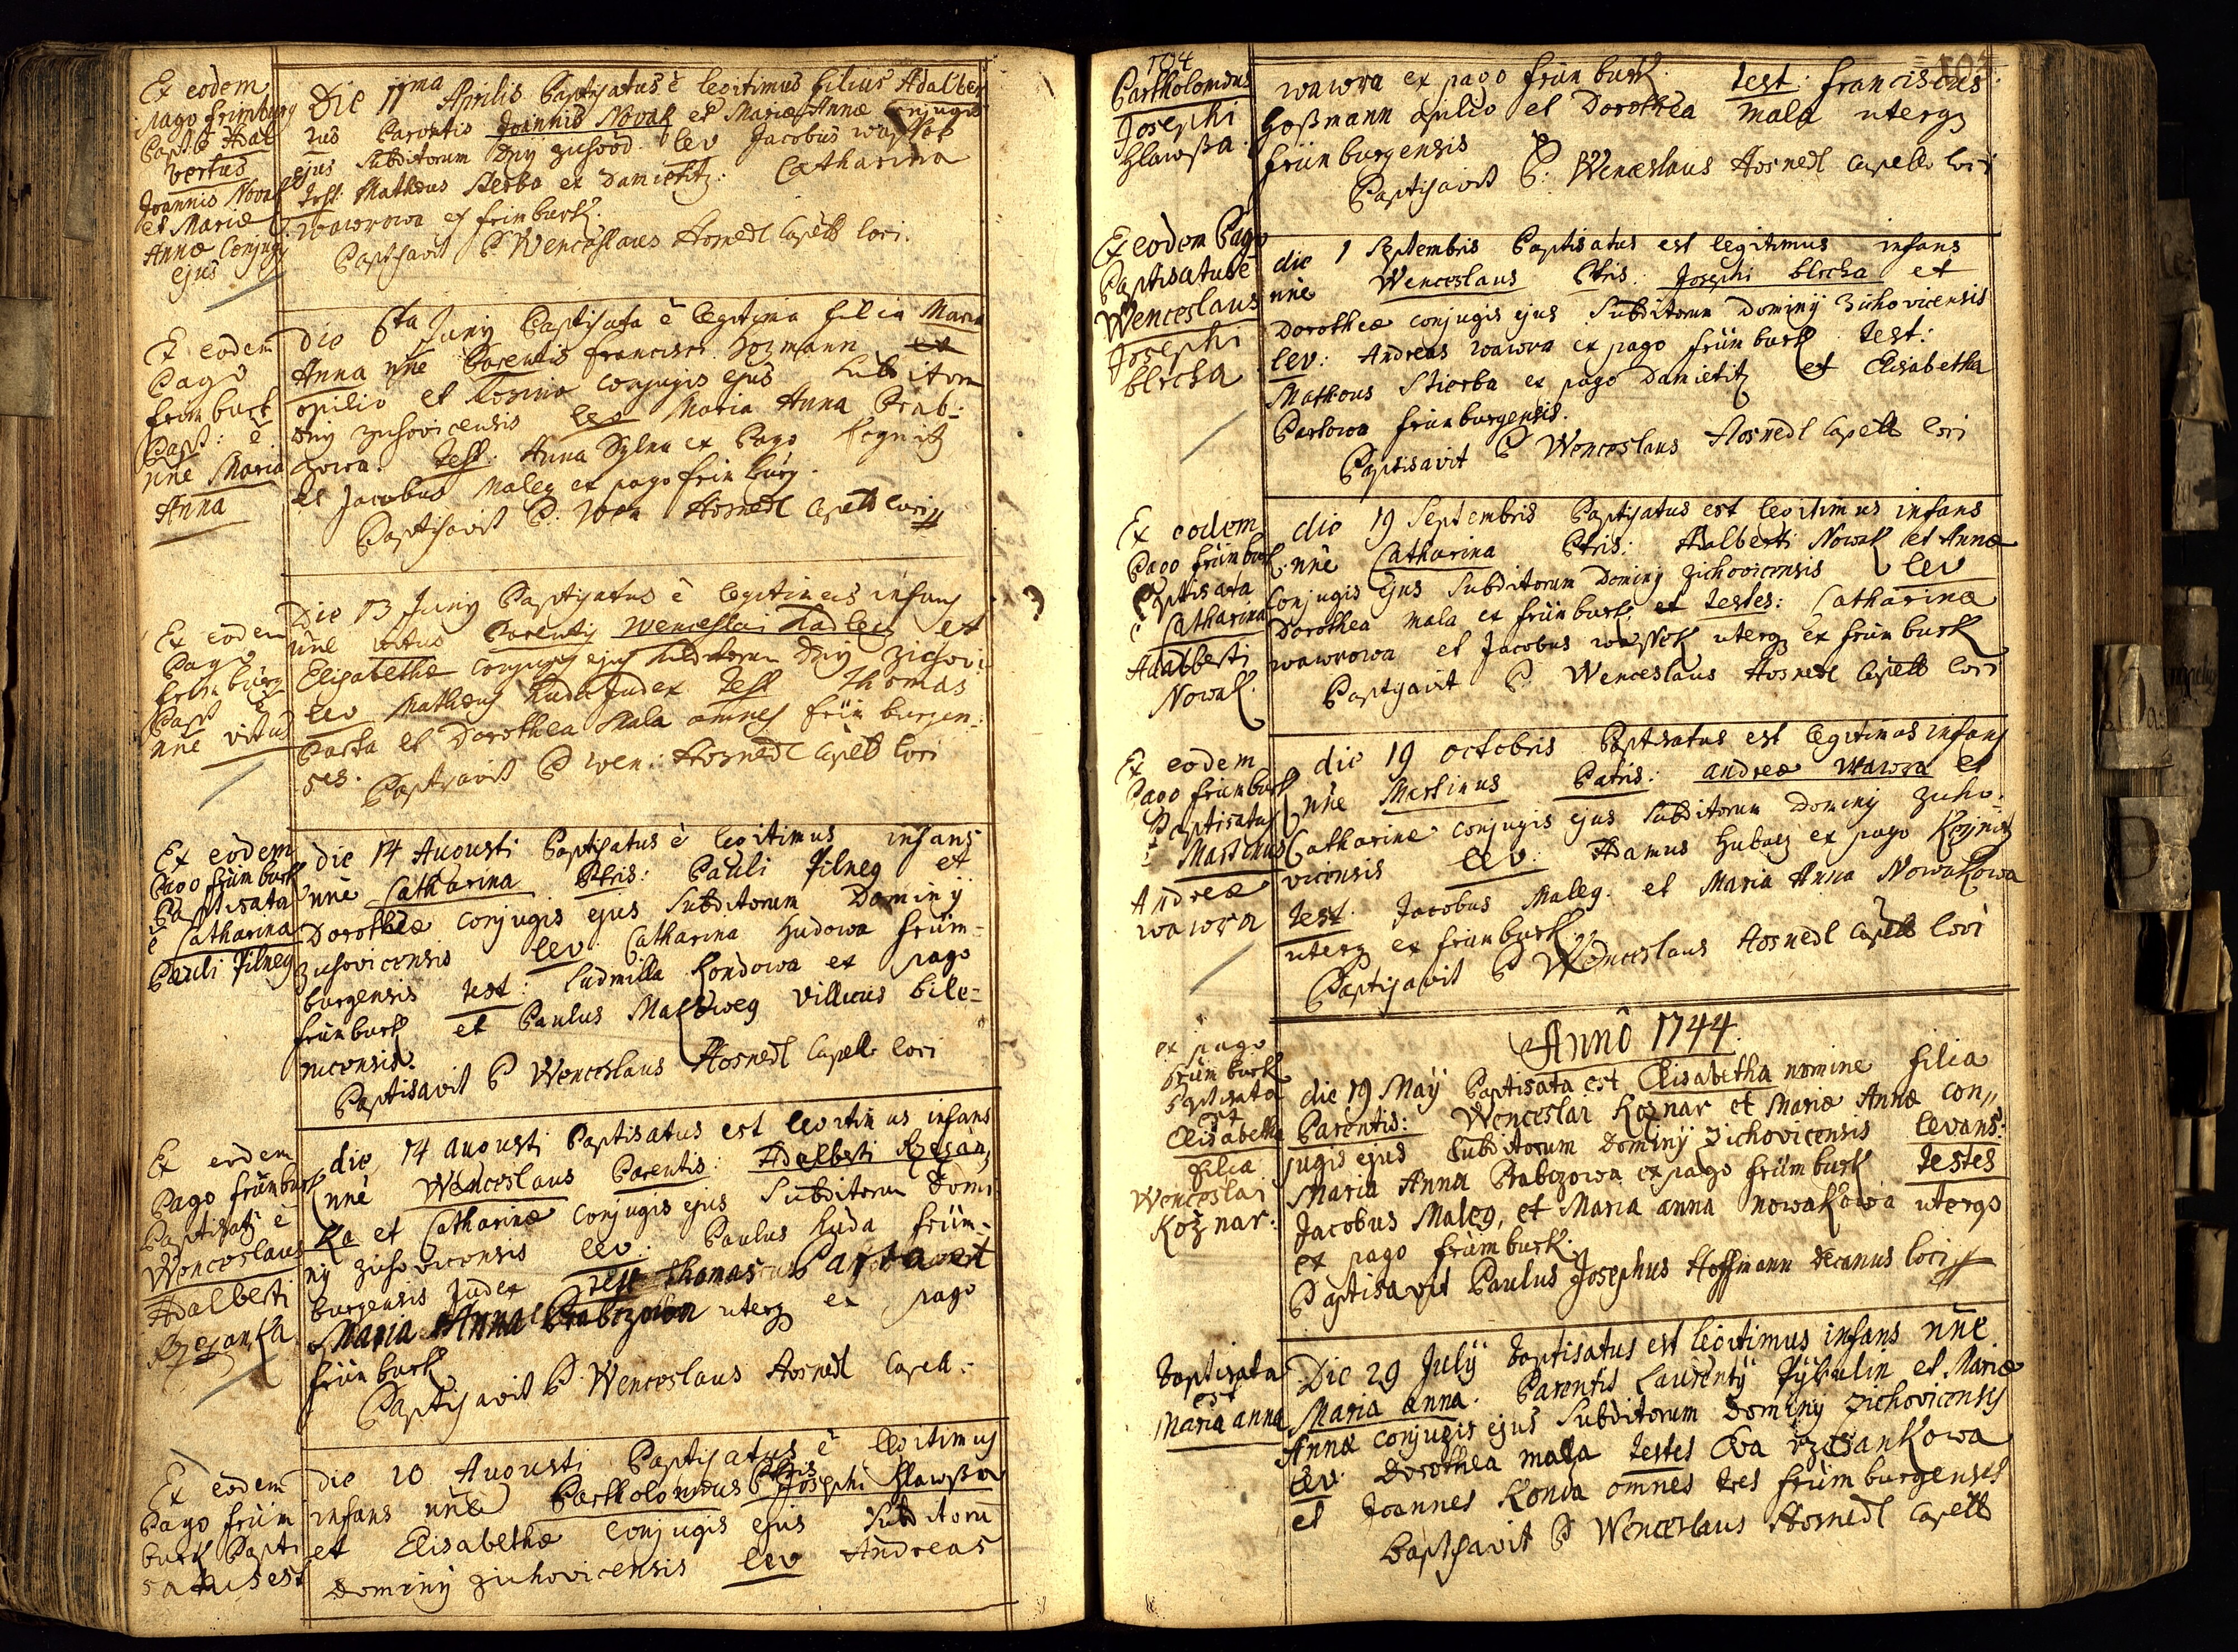 Ex eodem
pago frimburg
Bapt: è Adal
bertus
Joannis Novak
et Mariæ
Annæ Conjugy
ejus
Die 11ma Aprilis Baptisatus è legitimus filius Adalber
tus Parentis Joannis Novak et Mariæ Annæ Conjugis
ejus Subditorum Dny zuhovd. lev Jacobus
Test: Mathæus Sterba ex Damietitz. Catharina
wawrowa ex frimburk.
Baptisavit P Wenceslaus Hosnedl Capell: loci.
Ex eodem
Pago
frimburk
Bapt: è
nn̄e Maria
Anna
Die 6ta Juny Baptisata è legitima filia Maria
Anna nn̄e Parentis francisci Hozmann
opilio et Rosinæ conjugis ejus Subditorum
Dny zuhovicensis lev Maria Anna Brab=
czowa. Test. Anna ex Pago
et Jacobus Maley ex pago frimburg.
Baptisavit P. Wen Hosnedl Capell loci
Ex eodem
Pago
frimburg
Bapt è
nn̄e vitus
Die 13 Juny Baptisatus è legitimus infans
nn̄e vitus Parentis Wenceslai Kadlecz et
Elisabethæ conjugis ejus subditorum Dny zichovi:
lev Mathæus Huda Judex Test Thomas
Barta et Dorothea Mala omnes frimburgen=
ses.
Baptisavit P Wen: Hosnedl Capell loci
Ex eodem
Pago frimburk
Baptisata
è Catharina
Pauli Pilney
die 14 Augusti Baptisatus è legitimus infans
nn̄e Catharina Ptris: Pauli Pilney et
Dorotheæ conjugis ejus Subditorum Dominy
zuhovicensis lev: Catharina Hudowa frim=
burgensis test: Ludmilla Kondowa ex pago
frimburk et Paulus villicus bile=
nicensis.
Baptisavit P Wenceslaus Hosnedl Capell: loci
Ex eodem
Pago frimburk
Baptisaty è
Wenceslaus
Adalberti
Rzezanka
die 14 augusti Baptisatus est legitimus infans
nn̄e Wenceslaus Parentis: Adalberti Rzezan,
Ka et Catharinæ conjugis ejus Subditorum Domi
ny zichovicensis lev: Paulus Huda frim=
burgensis Judex Test Thomas Barta et
Maria Anna Brabczowa uterq ex pago
frimburk
Baptisavit P. Wenceslaus Hosnedl Capell:
Ex eodem
Pago frim
burk Bapti
satus est
die 20 Augusti Baptisatus è legitimus
infans nn̄e Bartholomæus Ptris Josephi Hlawßa
et Elisabethæ conjugis ejus Subditorū
Dominy zichovicensis lev Andreas
104
Bartholomæus
Josephi
Hlawßa.
wawra ex pago frimburk. test: franciscus
Hoßmann opilio et Dorothea mala uterq
frimburgensis
Baptisavit P: Wenceslaus Hosnedl Capell: loci
Ex eodem Pago
Baptisatus è
Wenceslaus
Josephi
blecha
die 1 Septembris Baptisatus est legitimus infans
nn̄e Wenceslaus Ptris. Josephi blecha et
Dorotheæ conjugis ejus Subditorum Dominy zichovicensis
lev: Andreas wawra ex pago frimburk test:
Matheus Stierba ex pago Damietitz et Elisabetha
Bartowa frimburgensis.
Baptisavit P Wenceslaus Hosnedl Capell loci
Ex eodem
Pago frimburk
Baptisata
è Catharina
Adalberti
Nowak.
die 19 Septembris Baptisatus est legitimus infans
nn̄e Catharina Ptris: Adalberti Nowak et Annæ
Conjugis ejus Subditorum Dominy zichovicensis lev
Dorothea mala ex frimburk, et testes: Catharina
wawrowa et Jacobus uterq ex frimburk
Baptisavit P Wenceslaus Hosnedl Capell loci
Ex eodem
Pago frimburk
Baptisatus
è Martinus
Andreæ
wawra
die 19 octobris Baptisatus est legitimus infans
nn̄e Martinus Patris: andreæ wawra et
Catharinæ conjugis ejus Subditorum Dominy zuho=
vicensis lev: Adamus ex pago
test: Jacobus Maley. et Maria Anna Nowakowa
uterq ex frimburk.
Baptisavit P Wenceslaus Hosnedl Capell loci
Annô 1744.
ex pago
frimburk
Baptisata
est
Elisabetha
filia
Wenceslai
Koznar:
die 19 Maÿ Baptisata est Elisabetha nomine filia
Parentis: Wenceslai Koznar et Mariæ Annæ con,,
jugis ejus Subditorum Dominÿ zichovicensis levans:
Maria Anna Brabczowa ex pago frimburk testes
Jacobus Maley, et Maria anna nowakowa uterqo
ex pago frimburk.
Baptisavit Paulus Josephus Hoffmann decanus loci
baptisata
est
Maria anna
Die 29 Julÿ baptisatus est legitimus infans nn̄e
Maria anna. Parentis Laurentÿ et Mariæ
Annæ conjugis ejus Subditorum Dominÿ zichovicensis
lev: Dorothea mala testes Eva rzezankowa
et Joannes Konda omnes tres frimburgenses
baptisavit P Wenceslaus Hosnedl Capell